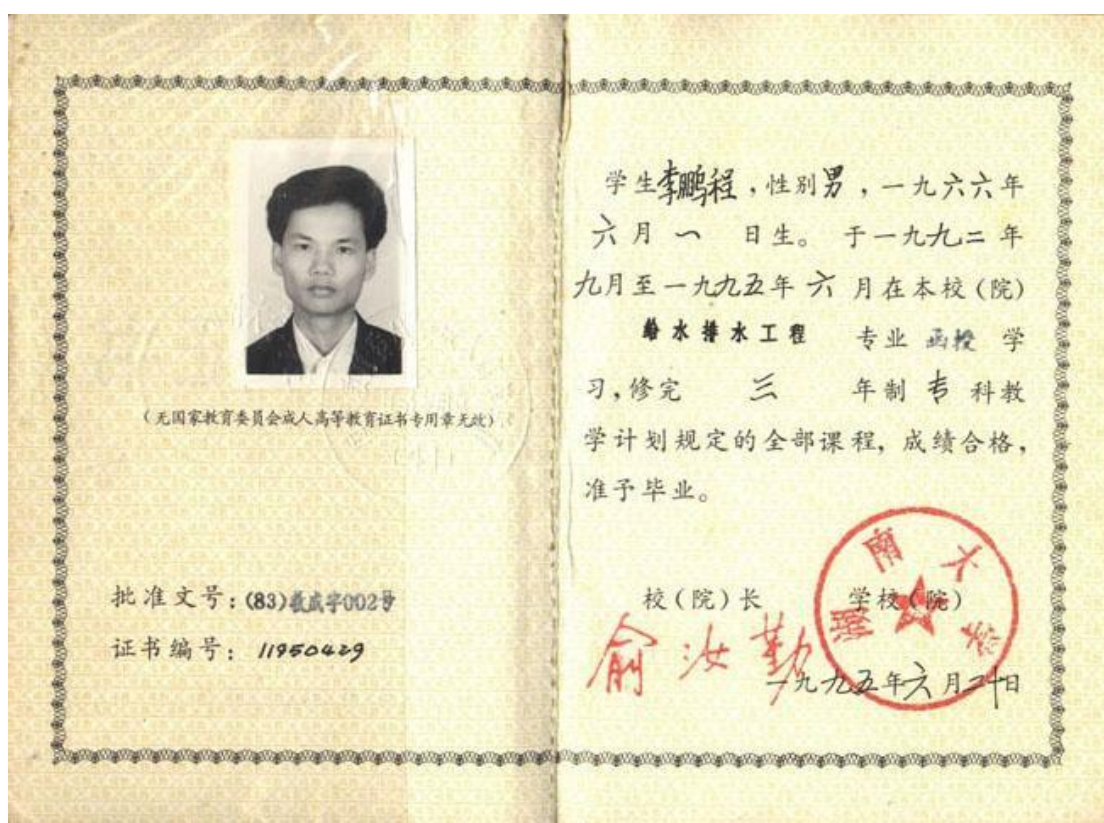 （无国家教育委员会成人高等教育证书专用章无效）
批准文号：(83)教成字002号
证书编号：11950429
学生李鹏程，性别男，一九六六年
六月一日生。于一九九二年
九月至一九九五年六月在本校（院）
给水排水工程 专业 函授 学
习，修完 三 年制 专 科教
学计划规定的全部课程，成绩合格，
准予毕业。
校（院）长 学校（院）
俞汝勤
湖南大学
一九九五年六月二十日